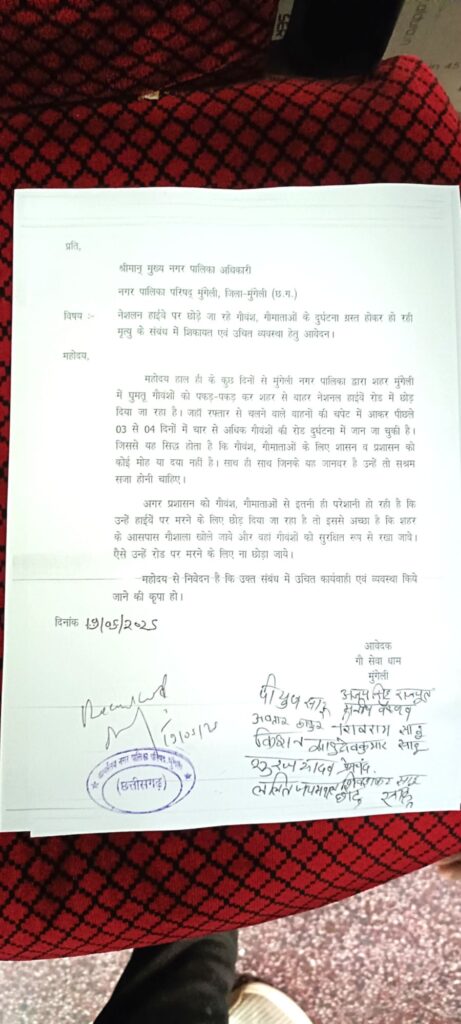 प्रति,
श्रीमान् मुख्य नगर पालिका अधिकारी
नगर पालिका परिषद् मुंगेली, जिला-मुंगेली (छ.ग.)
विषय :- नेशलन हाईवे पर छोड़े जा रहे गौवंश, गौमाताओं के दुर्घटना ग्रस्त होकर हो रही
मृत्यु के संबंध में शिकायत एवं उचित व्यवस्था हेतु आवेदन।
महोदय,
महोदय हाल ही के कुछ दिनों से मुंगेली नगर पालिका द्वारा शहर मुंगेली
में घुमतू गौवंशों को पकड़-पकड़ कर शहर से बाहर नेशनल हाईवे रोड में छोड़
दिया जा रहा है। जहाँ रफ्तार से चलने वाले वाहनों की चपेट में आकर पीछले
03 से 04 दिनों में चार से अधिक गौवंशों की रोड दुर्घटना में जान जा चुकी है।
जिससे यह सिद्ध होता है कि गौवंश, गौमाताओं के लिए शासन व प्रशासन को
कोई मोह या दया नहीं है। साथ ही साथ जिनके यह जानवर है उन्हें तो सश्रम
सजा होनी चाहिए।
अगर प्रशासन को गौवंश, गौमाताओं से इतनी ही परेशानी हो रही है कि
उन्हें हाईवें पर मरने के लिए छोड़ दिया जा रहा है तो इससे अच्छा है कि शहर
के आसपास गौशाला खोले जाये और वहां गौवंशों को सुरक्षित रूप से रखा जावे।
ऐसे उन्हें रोड पर मरने के लिए ना छोड़ा जाये।
महोदय से निवेदन है कि उक्त संबंध में उचित कार्यवाही एवं व्यवस्था किये
जाने की कृपा हो।
दिनांक 19/05/2025
आवेदक
गौ सेवा धाम
मुंगेली
Received
19/05/25
कार्यालय नगर पालिका परिषद मुंगेली
(छत्तीसगढ़)
पीयुष साहू अजय सिंह राजपूत
ठाकुर शिवराम साहू
किशन देवकुमार साहू
सुरज यादव
ललित जायसवाल